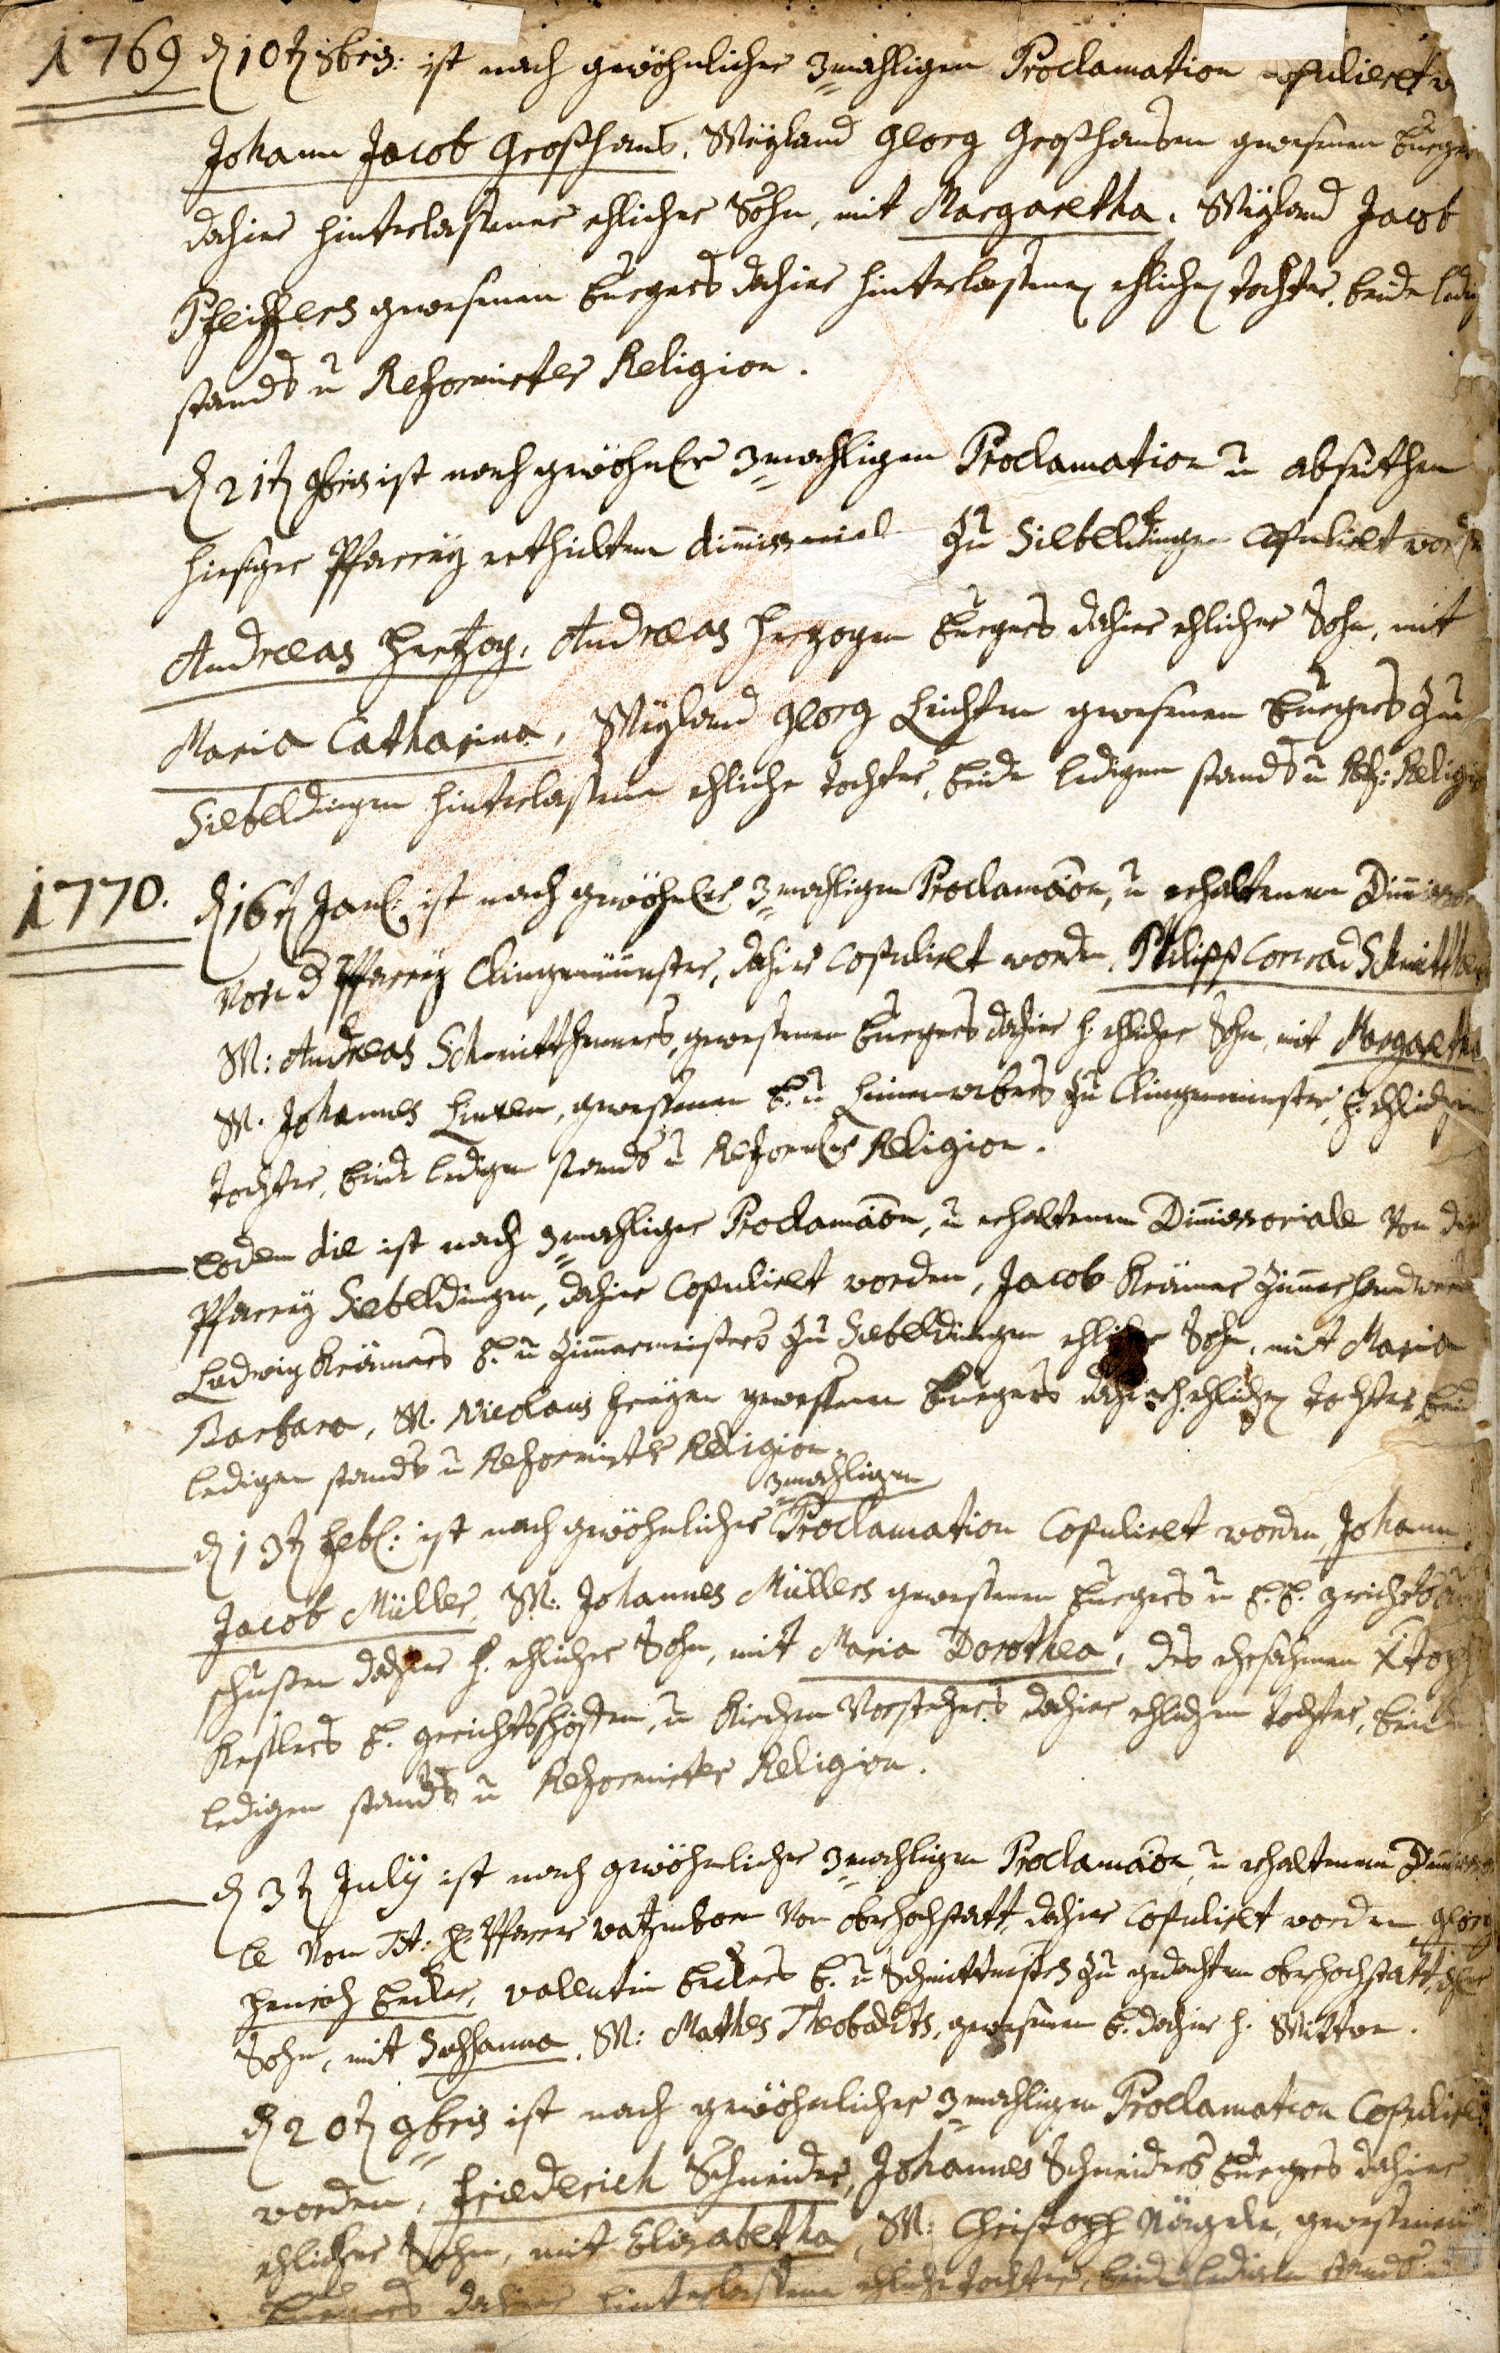 1769 d 10t 8bris: ist nach gewöhnlicher 3mahligen Proclamation copulirt
Johann Jacob Großhans, Weyland Georg Großhansen gewesenen Burgers
dahier hinterlassener ehlicher Sohn, mit Margaretha, Weyland Jacob
Pfeiffers gewesenen Burgers dahier hinterlassenen ehlichen Tochter, beide ledig
stands u Reformirter Religion.
d 21t 9bris ist nach gewöhnler 3mahligen Proclamation u
hiesiger Pfarrey ertheilten dimissorial zu Siebeldingen Copulirt worden
Andreas Hertzog, Andreas Herzogen Burgers dahier ehlicher Sohn, mit
Maria Catharina, Weyland Georg gewesenen Burgers zu
Siebeldingen hinterlassene ehliche Tochter, beide ledigen stands u Ref: Religion
1770. d 16t Jan: ist nach gewöhnler 3mahligen Proclamāon, u erhaltenen
von d Pfarrey Clingenmünster, dahier Copulirt worden, Philipp Conrad
W: Andreas Schmitthenners, gewesenen Burgers dahier h. ehlicher Sohn, mit Margaretha
W. Johannes gewesenen B. u Leinenwebers zu Clingenmünster, h. ehlichen
Tochter, beide ledigen stands u Reformler Religion.
Eodem die ist nach 3mahliger Proclamāon, u erhaltenem Dimissoriale von der
Pfarrey Siebeldingen, dahier Copulirt worden, Jacob Krämer
Ludwig Krämers B. u Zimmermeisters zu Siebeldingen ehlicher Sohn, mit Maria
Barbara, W. Nicolaus gewesenen Burgers dahier h. ehlichen Tochter beide
ledigen stands u Reformirter Religion.
3mahligen
d 13t Febr: ist nach gewöhnlicher Proclamation Copulirt worden, Johann
Jacob Müller, W: Johannes Müllers gewesenen Burgers u
dahier h. ehlicher Sohn, mit Maria Dorothea, des ehrsahmen
Keßlers B. gerichtsschöffen, u Kirchen Vorstehers dahier ehlichen Tochter, beide
ledigen stands u Reformirter Religion.
d 3t July ist nach gewöhnlicher 3mahligen Proclamāon, u erhaltenem
le von Tit: H. Pfarrer von Oberhochstatt, dahier Copulirt worden, Georg
Henrich Becker, Vallentin Beckers B. u zu gedachten Oberhochstatt, ehlicher
Sohn, mit W: Mathes Theobalts, gewesenen B. dahier h. Wittwe.
d 20t 9bris ist nach gewöhnlicher 3mahligen Proclamation Copulirt
worden, Friederich Schneider, Johannes Schneiders Burgers dahier
ehlicher Sohn, mit Elisabetha, W: Christoph gewesenen
Burgers dahier hinterlassene ehliche Tochter, beide ledigen stands u